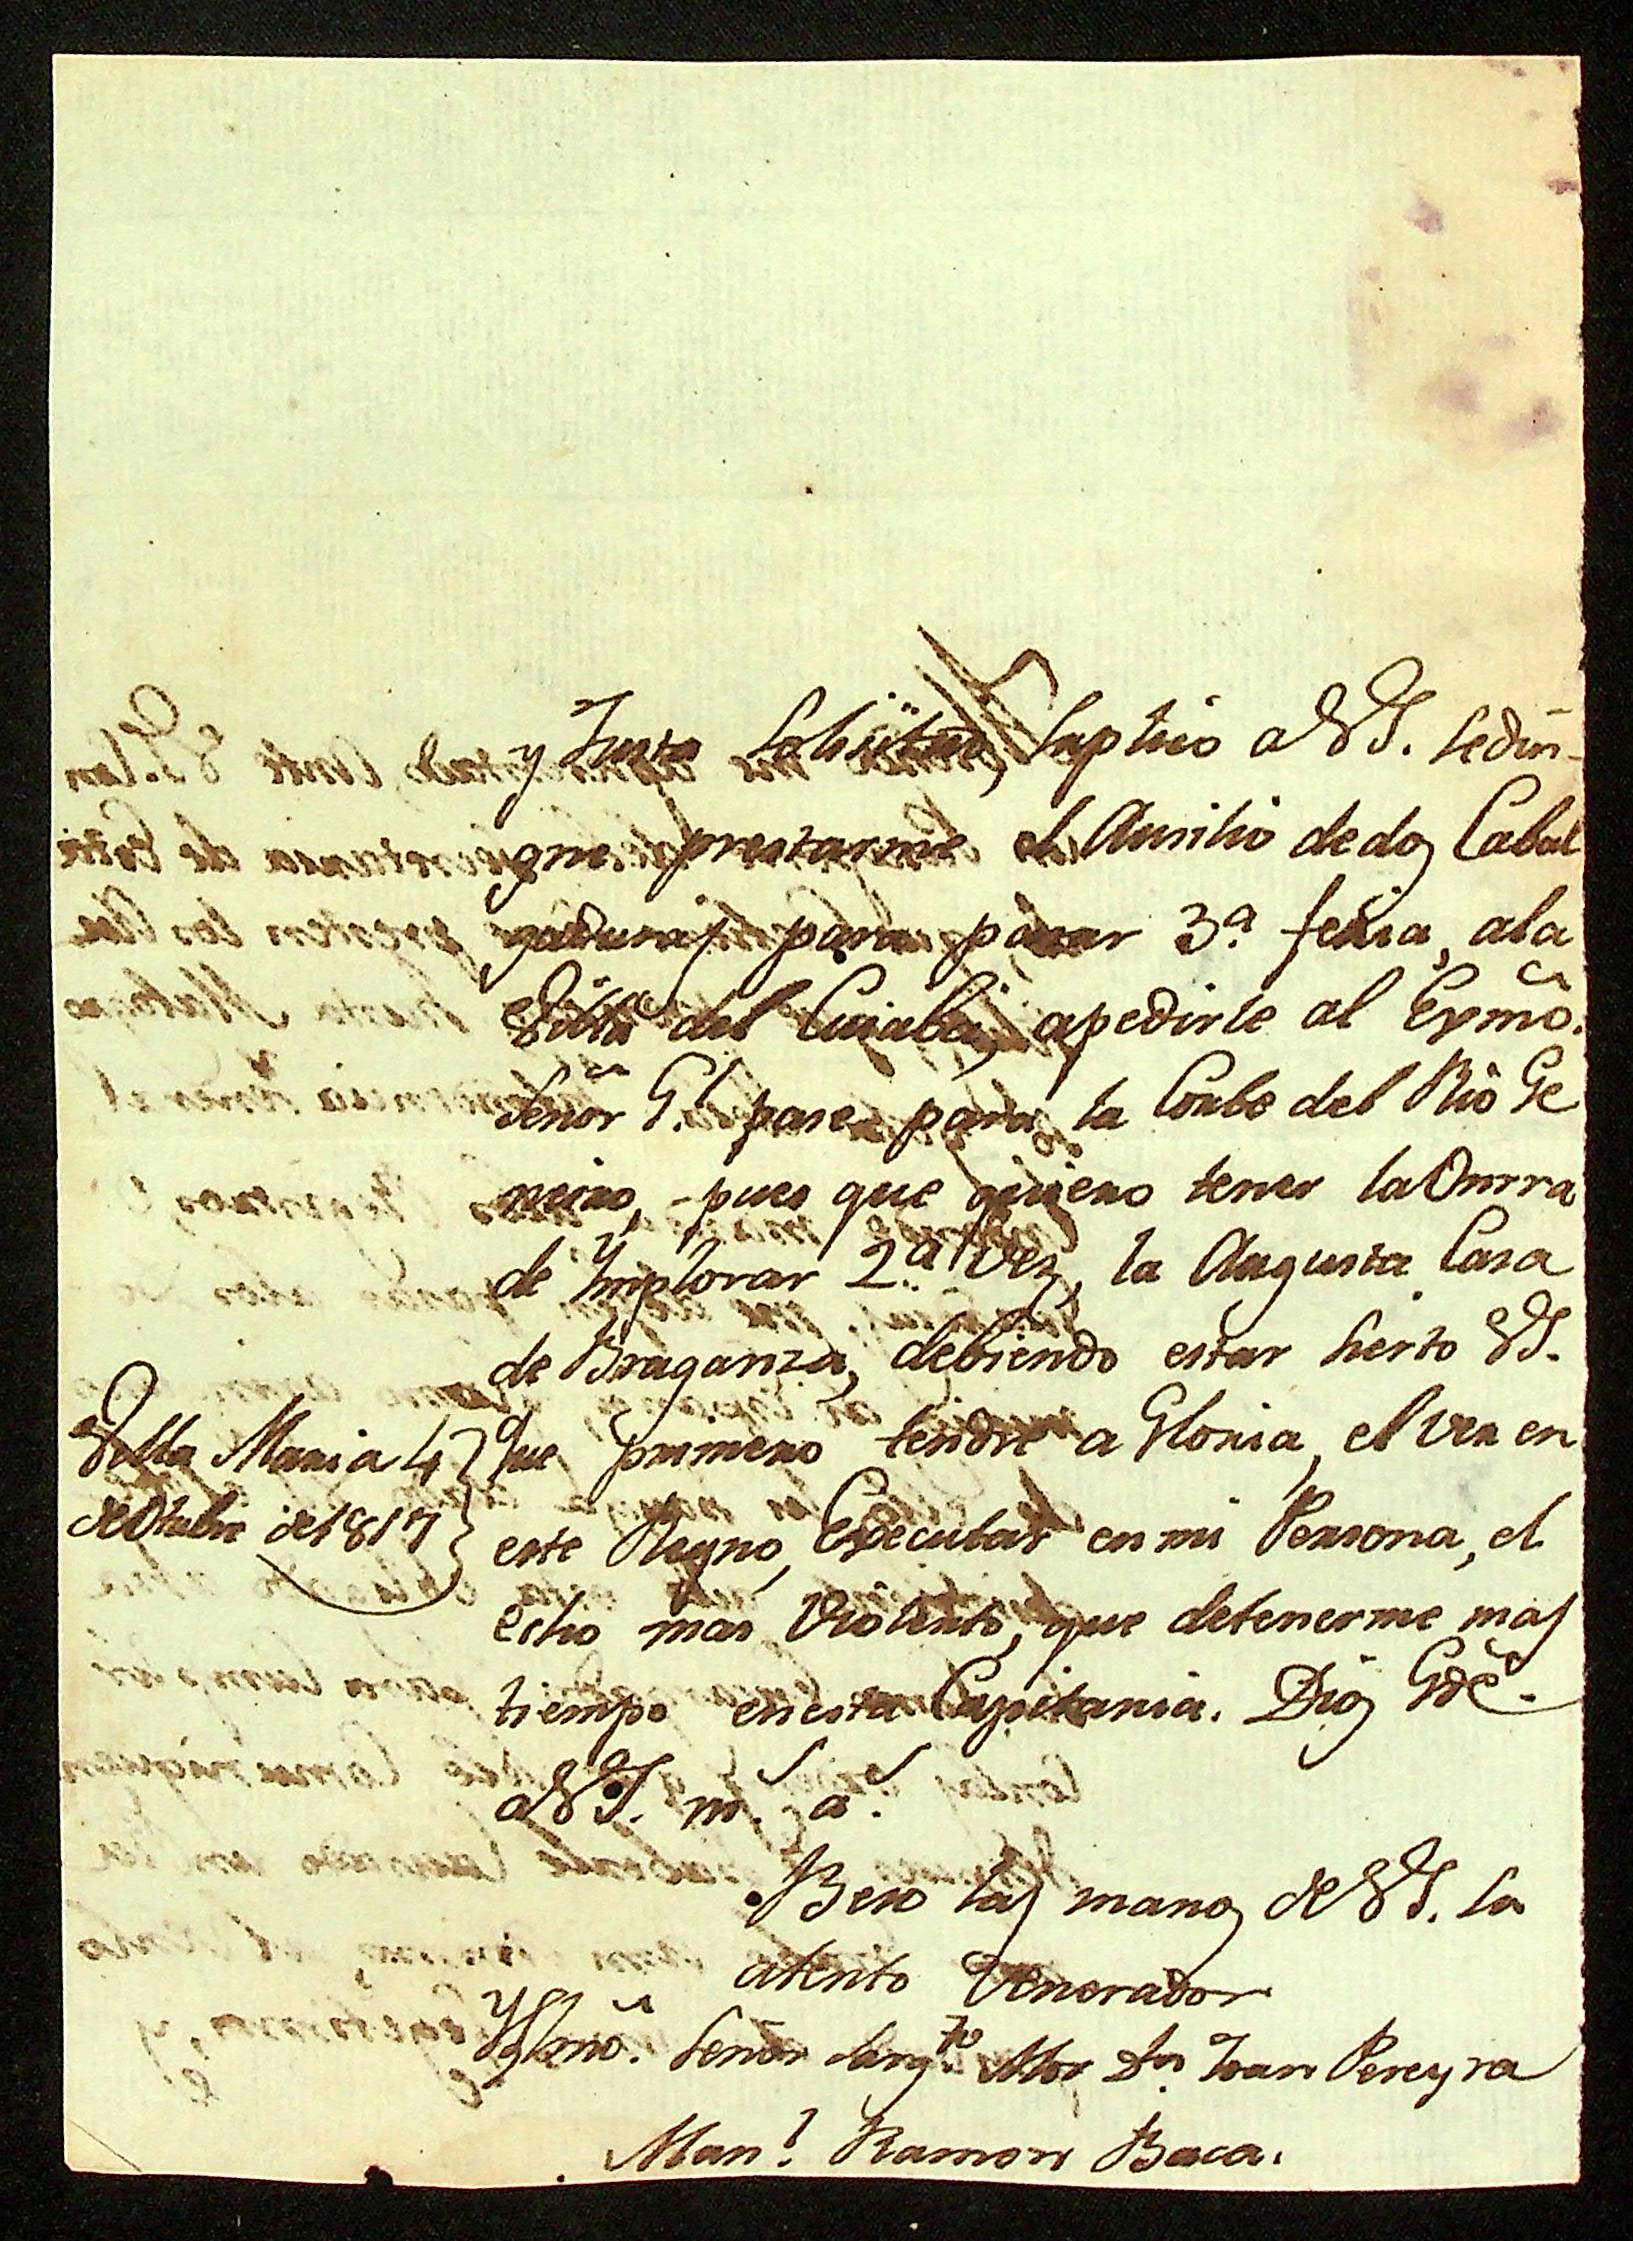 y Justa Solisitud, Suplico a VS. sedig-
gne prestarme el Ausilio dedos Cabal
gaduras para pasar 3ª feria, ala
Villa del Cuiabá, apedirle al Exmô.
Señor G.l pase para la Corte del Rio Ge
neiro, pues que quiero tener la Onrra
de Ymplorar 2.ª Vez, la Augusta Casa
de Braganza, debiendo estar sierto VS.
que primero tendre a Gloria, el ver en
este Reyno, Executar en mi Persona, el
echo mas Violento, que detenerme mas
tiempo enesta Capitania. Dios Gde.
aVS. m.s a.s
Villa Maria 4
deOtubre de1817
Beso las manos de VS. su
atento Venerador
Yllmô. Señor Sarg.to Mor Dn. Joan Pereyra
Man.l Ramon Baca.